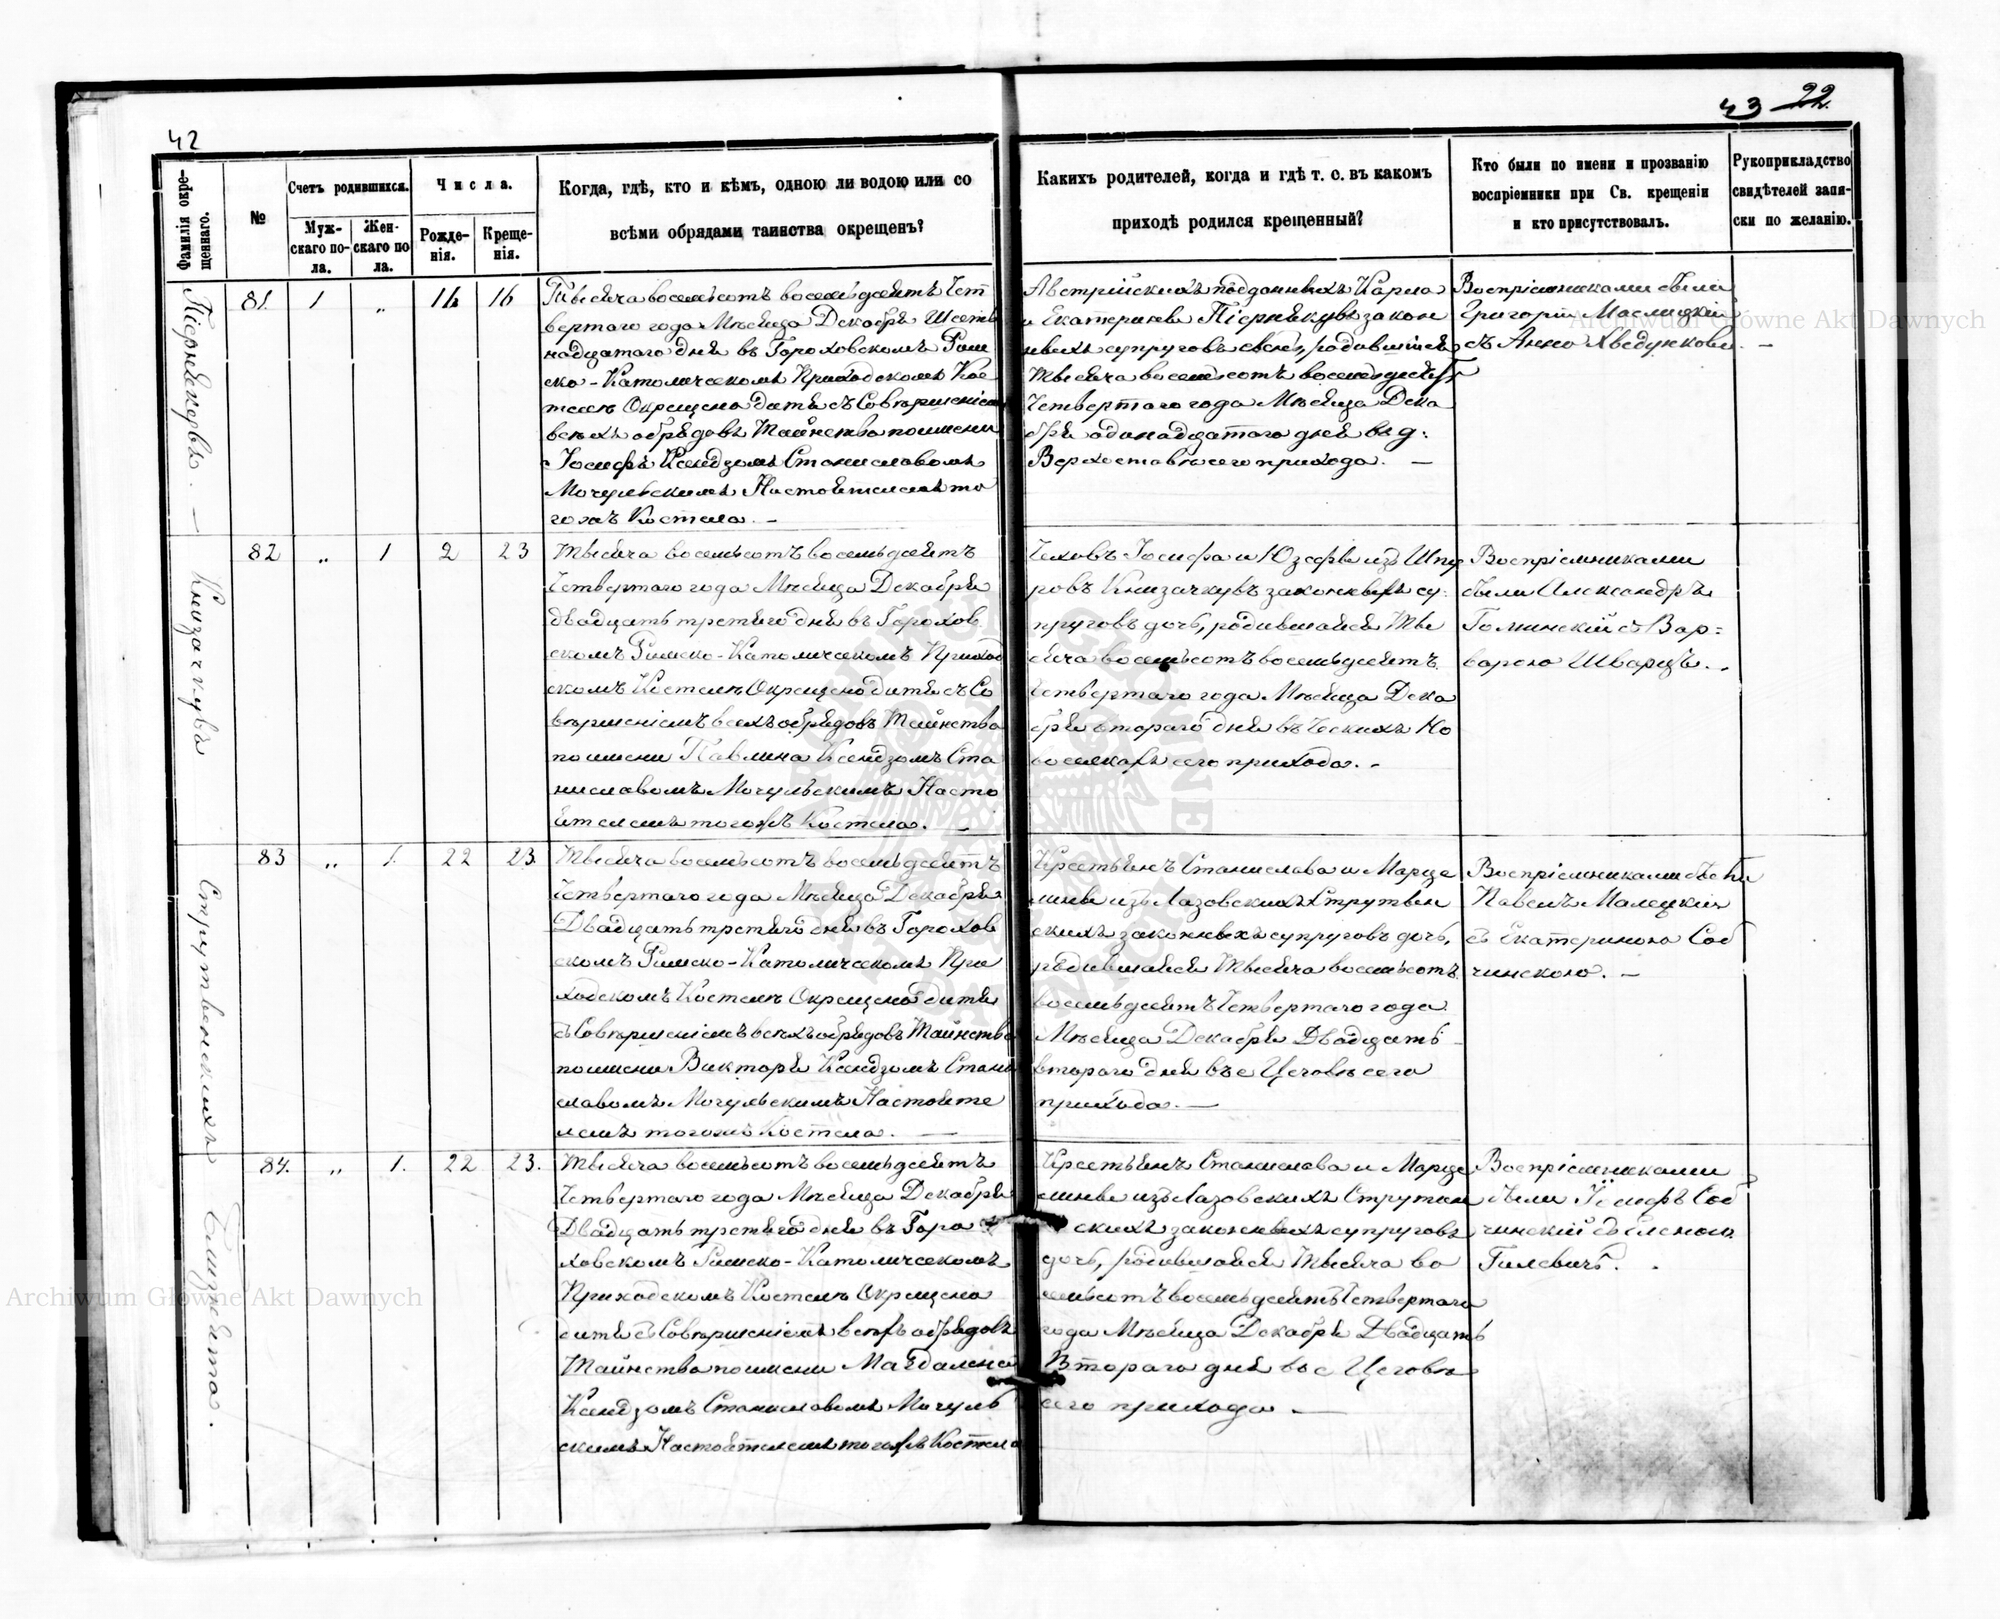 42
43 22.
Фамилія окре-
щеннаго.
№
Счетъ родившихся.
Муж-
скаго по-
ла.
Жен-
скаго по
ла.
Числа.
Рожде-
нія.
Креще-
нія.
Когда, гдѣ, кто и кѣмъ, одною ли водою или со
всѣми обрядами таинства окрещенъ?
Какихъ родителей, когда и гдѣ т. е. въ какомъ
приходѣ родился крещенный?
Кто были по имени и прозванію
воспріемники при Св. крещеніи
и кто присутствовалъ.
Рукоприкладство
свидѣтелей запи-
ски по желанію.
81. 1 „ 16
Тысяча восемьсотъ восемьдесятъ Чет
вертаго года Мѣсяца Декабря Шест
надцатаго дня въ Гороховскомъ Рим
ско-Католическомъ Приходскомъ Кос
телѣ Окрещено дитя съ Совершеніем
всѣхъ обрядовъ Таинства по имени
Іосифъ Ксендзомъ Станиславомъ
Мочульскимъ Настоятелемъ то
гожъ Костела. —
Австрійскихъ подданныхъ Карла
и Екатерины закон
ныхъ супруговъ сынъ, родившійся
Тысяча восемьсотъ восемьдесятъ
Четвертаго года Мѣсяца Дека
бря одинадцатаго дня въ д:
сего прихода. —
Воспріемниками были
Григорій
съ Анною
82 „ 1 2 23
Тысяча восемьсотъ восемьдесятъ
Четвертаго года Мѣсяца Декабря
двадцать третяго дня въ Горохов
скомъ Римско-Католическомъ Приход
скомъ Костелѣ Окрещено дитя съ Со
вершеніемъ всѣхъ обрядовъ Таинства
по имени Павлина Ксендзомъ Ста
ниславомъ Мочульскимъ Насто
ятелемъ тогожъ Костела. —
Чеховъ Іосифа и Юзефы изъ
законныхъ су:
пруговъ дочь, родившаяся Ты
сяча восемьсотъ восемьдесятъ
Четвертаго года Мѣсяца Дека
бря втораго дня въ Ческихъ Но
воселкахъ сего прихода. -
Воспріемниками
были Александръ
съ Вар=
варою Шварцъ. -
Струтвенскихъ
83 „ 1. 22 23.
Тысяча восемьсотъ восемьдесятъ
Четвертаго года Мѣсяца Декабря
Двадцать третяго дня въ Горохов
скомъ Римско-Католическомъ При
ходскомъ Костелѣ Окрещено дитя
съ Совершеніемъ всѣхъ обрядовъ Таинства
по имени Викторія Ксендзомъ Стани
славомъ Мочульскимъ Настояте
лемъ тогожъ Костела. —
Крестьянъ Станислава и Марце
лины изъ Лазовскихъ Струтвен
скихъ законныхъ супруговъ дочь,
родившаяся Тысяча восемьсотъ
восемьдесятъ Четвертаго года
Мѣсяца Декабря Двадцать
втораго дня въ с Цеговѣ сего
прихода. —
Воспріемниками были
Павелъ Малецкій
съ Екатериною Соб
чинскою. —
Близнята.
84. „ 1. 22 23.
Тысяча восемьсотъ восемьдесятъ
Четвертаго года Мѣсяца Декабря
Двадцать третяго дня въ Горо
ховскомъ Римско-Католическомъ
Приходскомъ Костелѣ Окрещено
дитя съ Совершеніемъ всѣхъ обрядовъ
Таинства по имени Магдалена
Ксендзомъ Станиславомъ Мочуль
скимъ Настоятелемъ тогожъ Костела
Крестьянъ Станислава и Марце
лины изъ Лазовскихъ Струтвен
скихъ законныхъ супруговъ
дочь, родившаяся Тысяча во
семьсотъ восемьдесятъ Четвертаго
года Мѣсяца Декабря Двадцать
Втораго дня въ с Цеговѣ
сего прихода —
Воспріемниками
были Іосифъ Соб
чинскій съ Еленою
Гилевичъ.
Archiwum Główne Akt Dawnych
Archiwum Główne Akt Dawnych